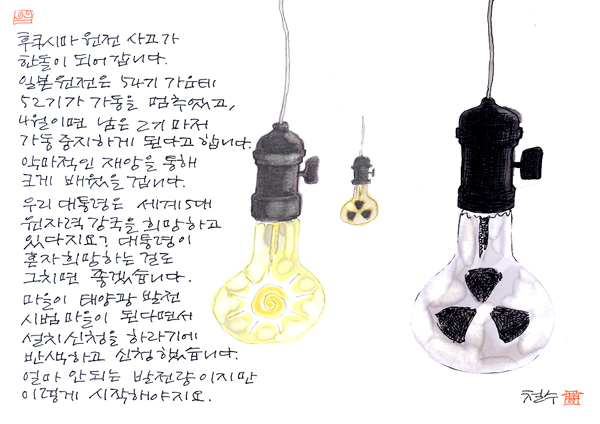 후쿠시마 원전 사고가
한돌이 되어갑니다.
일본 원전은 54기 가운데
52기가 가동을 멈추었고,
4월이면 남은 2기마저
가동 중지하게 된다고 합니다.
악마적인 재앙을 통해
크게 배웠을 겁니다.
우리 대통령은 세계 5대
원자력 강국을 희망하고
있다지요? 대통령이
혼자 희망하는 걸로
그치면 좋겠습니다.
마을이 태양광 발전
시범마을이 된다면서
설치신청을 하라기에
반색하고 신청했습니다.
얼마 안되는 발전량이지만
이렇게 시작해야지요.
철수